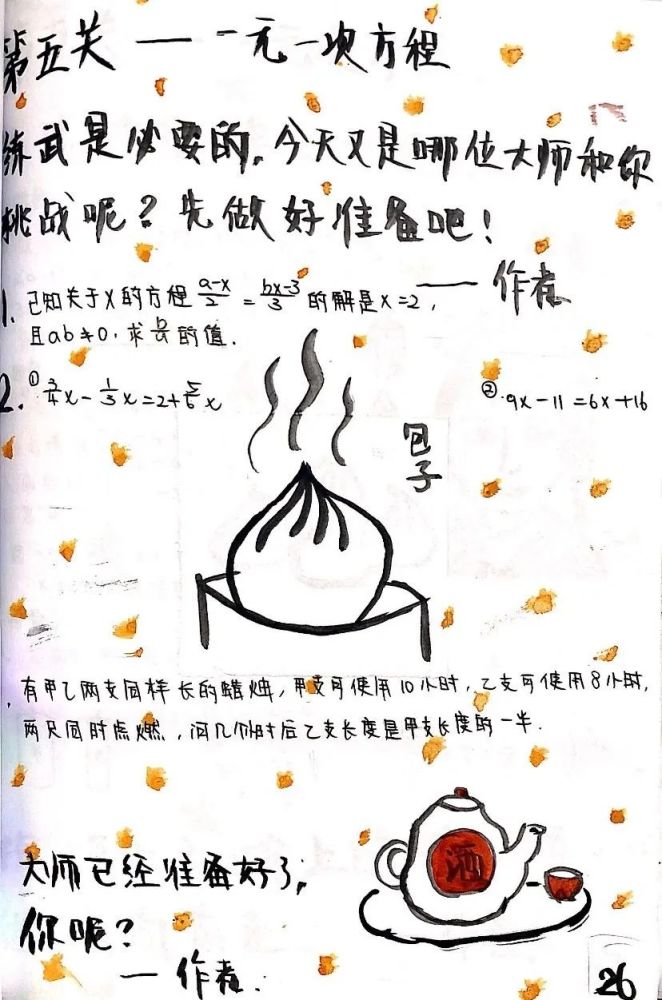 第五关 —— 一元一次方程
练武是必要的,今天又是哪位大师和你
挑战呢?先做好准备吧!
—— 作者
1. 已知关于x的方程 (a-x)/2 = (bx-3)/3 的解是x=2,
且ab≠0,求b/a的值.
2. ① 3/4x - 1/3x = 2 + 5/6x
② 9x-11=6x+16
包子
有甲乙两支同样长的蜡烛,甲支可使用10小时,乙支可使用8小时,
两只同时点燃,问几个小时后乙支长度是甲支长度的一半.
酒
大师已经准备好了,
你呢?
— 作者.
26